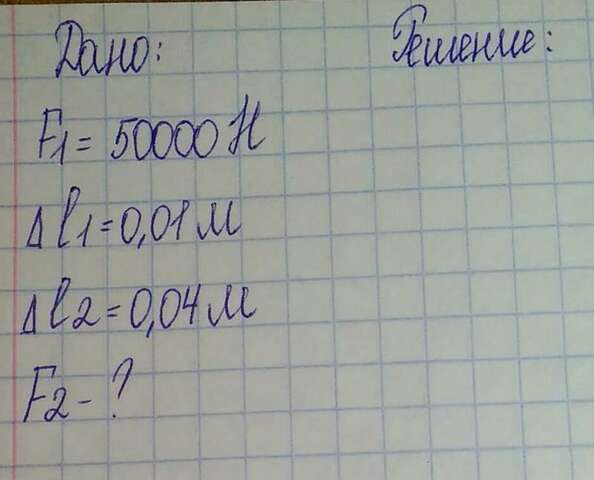 Дано: Решение:
F1 = 50000 Н
Δl1 = 0,01 м
Δl2 = 0,04 м
F2 - ?